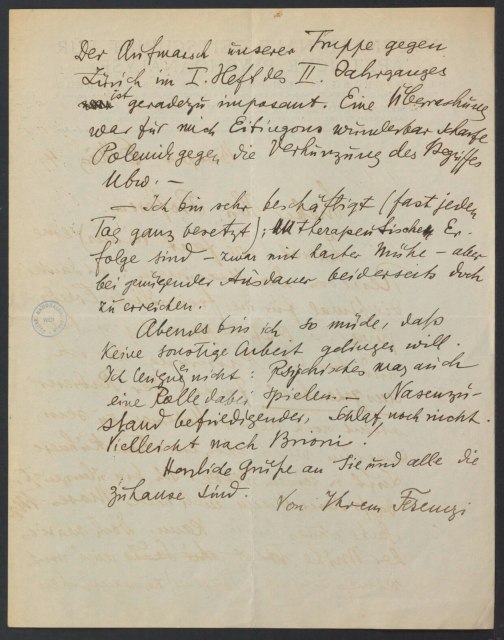 Der Aufmarsch unserer Truppe gegen
Zürich im I. Heft des II. Jahrganges
ist geradezu imposant. Eine Überraschung
war für mich Eitingons wunderbar scharfe
Polemik gegen die Verhunzung des Begriffes
Ubw. –
– Ich bin sehr beschäftigt (fast jeden
Tag ganz besetzt); therapeutische Er-
folge sind – zwar mit harter Mühe – aber
bei genügender Ausdauer beiderseits doch
zu erreichen.
Abends bin ich so müde, daß
keine sonstige Arbeit gelingen will.
Ich leugne nicht: Psychisches mag auch
eine Rolle dabei spielen. – Nasenzu-
stand befriedigender, Schlaf noch nicht.
Vielleicht nach Brioni!
Herzliche Grüße an Sie und alle die
zuhause sind.
Von Ihrem Ferenczi